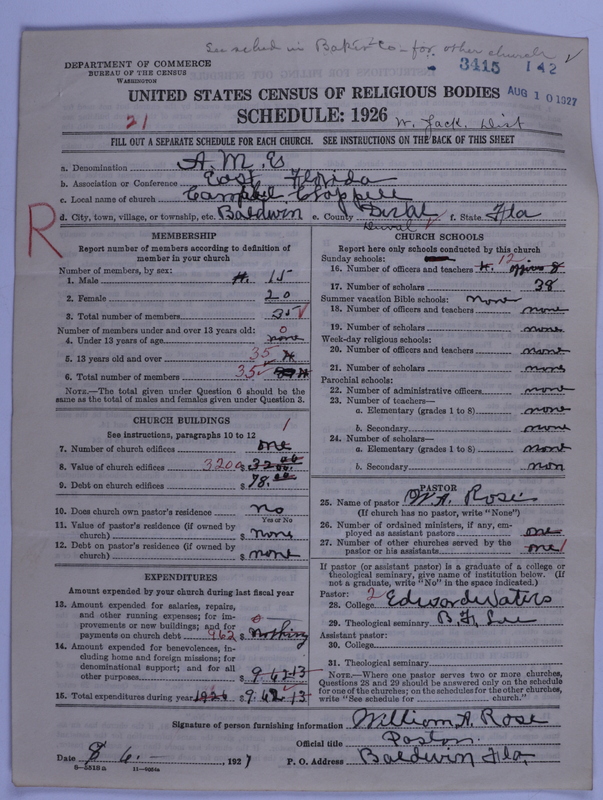 See sched in Baker Co - for other church ✓
DEPARTMENT OF COMMERCE
BUREAU OF THE CENSUS
WASHINGTON
3415 142
UNITED STATES CENSUS OF RELIGIOUS BODIES
AUG 10 1927
SCHEDULE: 1926
21
W. Jack. Dist
FILL OUT A SEPARATE SCHEDULE FOR EACH CHURCH. SEE INSTRUCTIONS ON THE BACK OF THIS SHEET
a. Denomination A. M. E.
b. Association or Conference East Florida
c. Local name of church Campbel Chappell
d. City, town, village, or township, etc. Baldwin e. County Duval ✓ f. State Fla
Duval
R
MEMBERSHIP
Report number of members according to definition of
member in your church
Number of members, by sex:
1. Male 15
2. Female 20
3. Total number of members 35 ✓
Number of members under and over 13 years old:
0
4. Under 13 years of age none
5. 13 years old and over 35
6. Total number of members 35
NOTE.—The total given under Question 6 should be the
same as the total of males and females given under Question 3.
CHURCH BUILDINGS
See instructions, paragraphs 10 to 12
1
7. Number of church edifices one
8. Value of church edifices 3200 $ 32 00.00
9. Debt on church edifices $ 78.00
10. Does church own pastor's residence no
Yes or No
11. Value of pastor's residence (if owned by
church) $ none
12. Debt on pastor's residence (if owned by
church) $ none
EXPENDITURES
Amount expended by your church during last fiscal year
13. Amount expended for salaries, repairs,
and other running expenses; for im-
provements or new buildings; and for
payments on church debt 962 $ nothing
0
14. Amount expended for benevolences, in-
cluding home and foreign missions; for
denominational support; and for all
other purposes $ 962 13
15. Total expenditures during year 1926 $ 962 13
CHURCH SCHOOLS
Report here only schools conducted by this church
Sunday schools:
12
16. Number of officers and teachers 4. officers 8
17. Number of scholars 38
Summer vacation Bible schools: none
18. Number of officers and teachers none
19. Number of scholars none
Week-day religious schools:
20. Number of officers and teachers none
21. Number of scholars none
Parochial schools:
22. Number of administrative officers none
23. Number of teachers—
a. Elementary (grades 1 to 8) none
b. Secondary none
24. Number of scholars—
a. Elementary (grades 1 to 8) none
b. Secondary non
PASTOR
25. Name of pastor W. A. Rose
(If church has no pastor, write "None")
26. Number of ordained ministers, if any, em-
ployed as assistant pastors one
27. Number of other churches served by the
pastor or his assistants one 1
If pastor (or assistant pastor) is a graduate of a college or
theological seminary, give name of institution below. (If
not a graduate, write "No" in the space indicated.)
Pastor: 2
28. College Edward Waters
29. Theological seminary B. F. Lee
Assistant pastor:
30. College
31. Theological seminary
NOTE.—Where one pastor serves two or more churches,
Questions 28 and 29 should be answered only on the schedule
for one of the churches; on the schedules for the other churches,
write "See schedule for church."
Signature of person furnishing information William A. Rose
Official title Pastor
Date 8 6.—, 1927 P. O. Address Baldwin Fla,
8—5518a 11—9064a